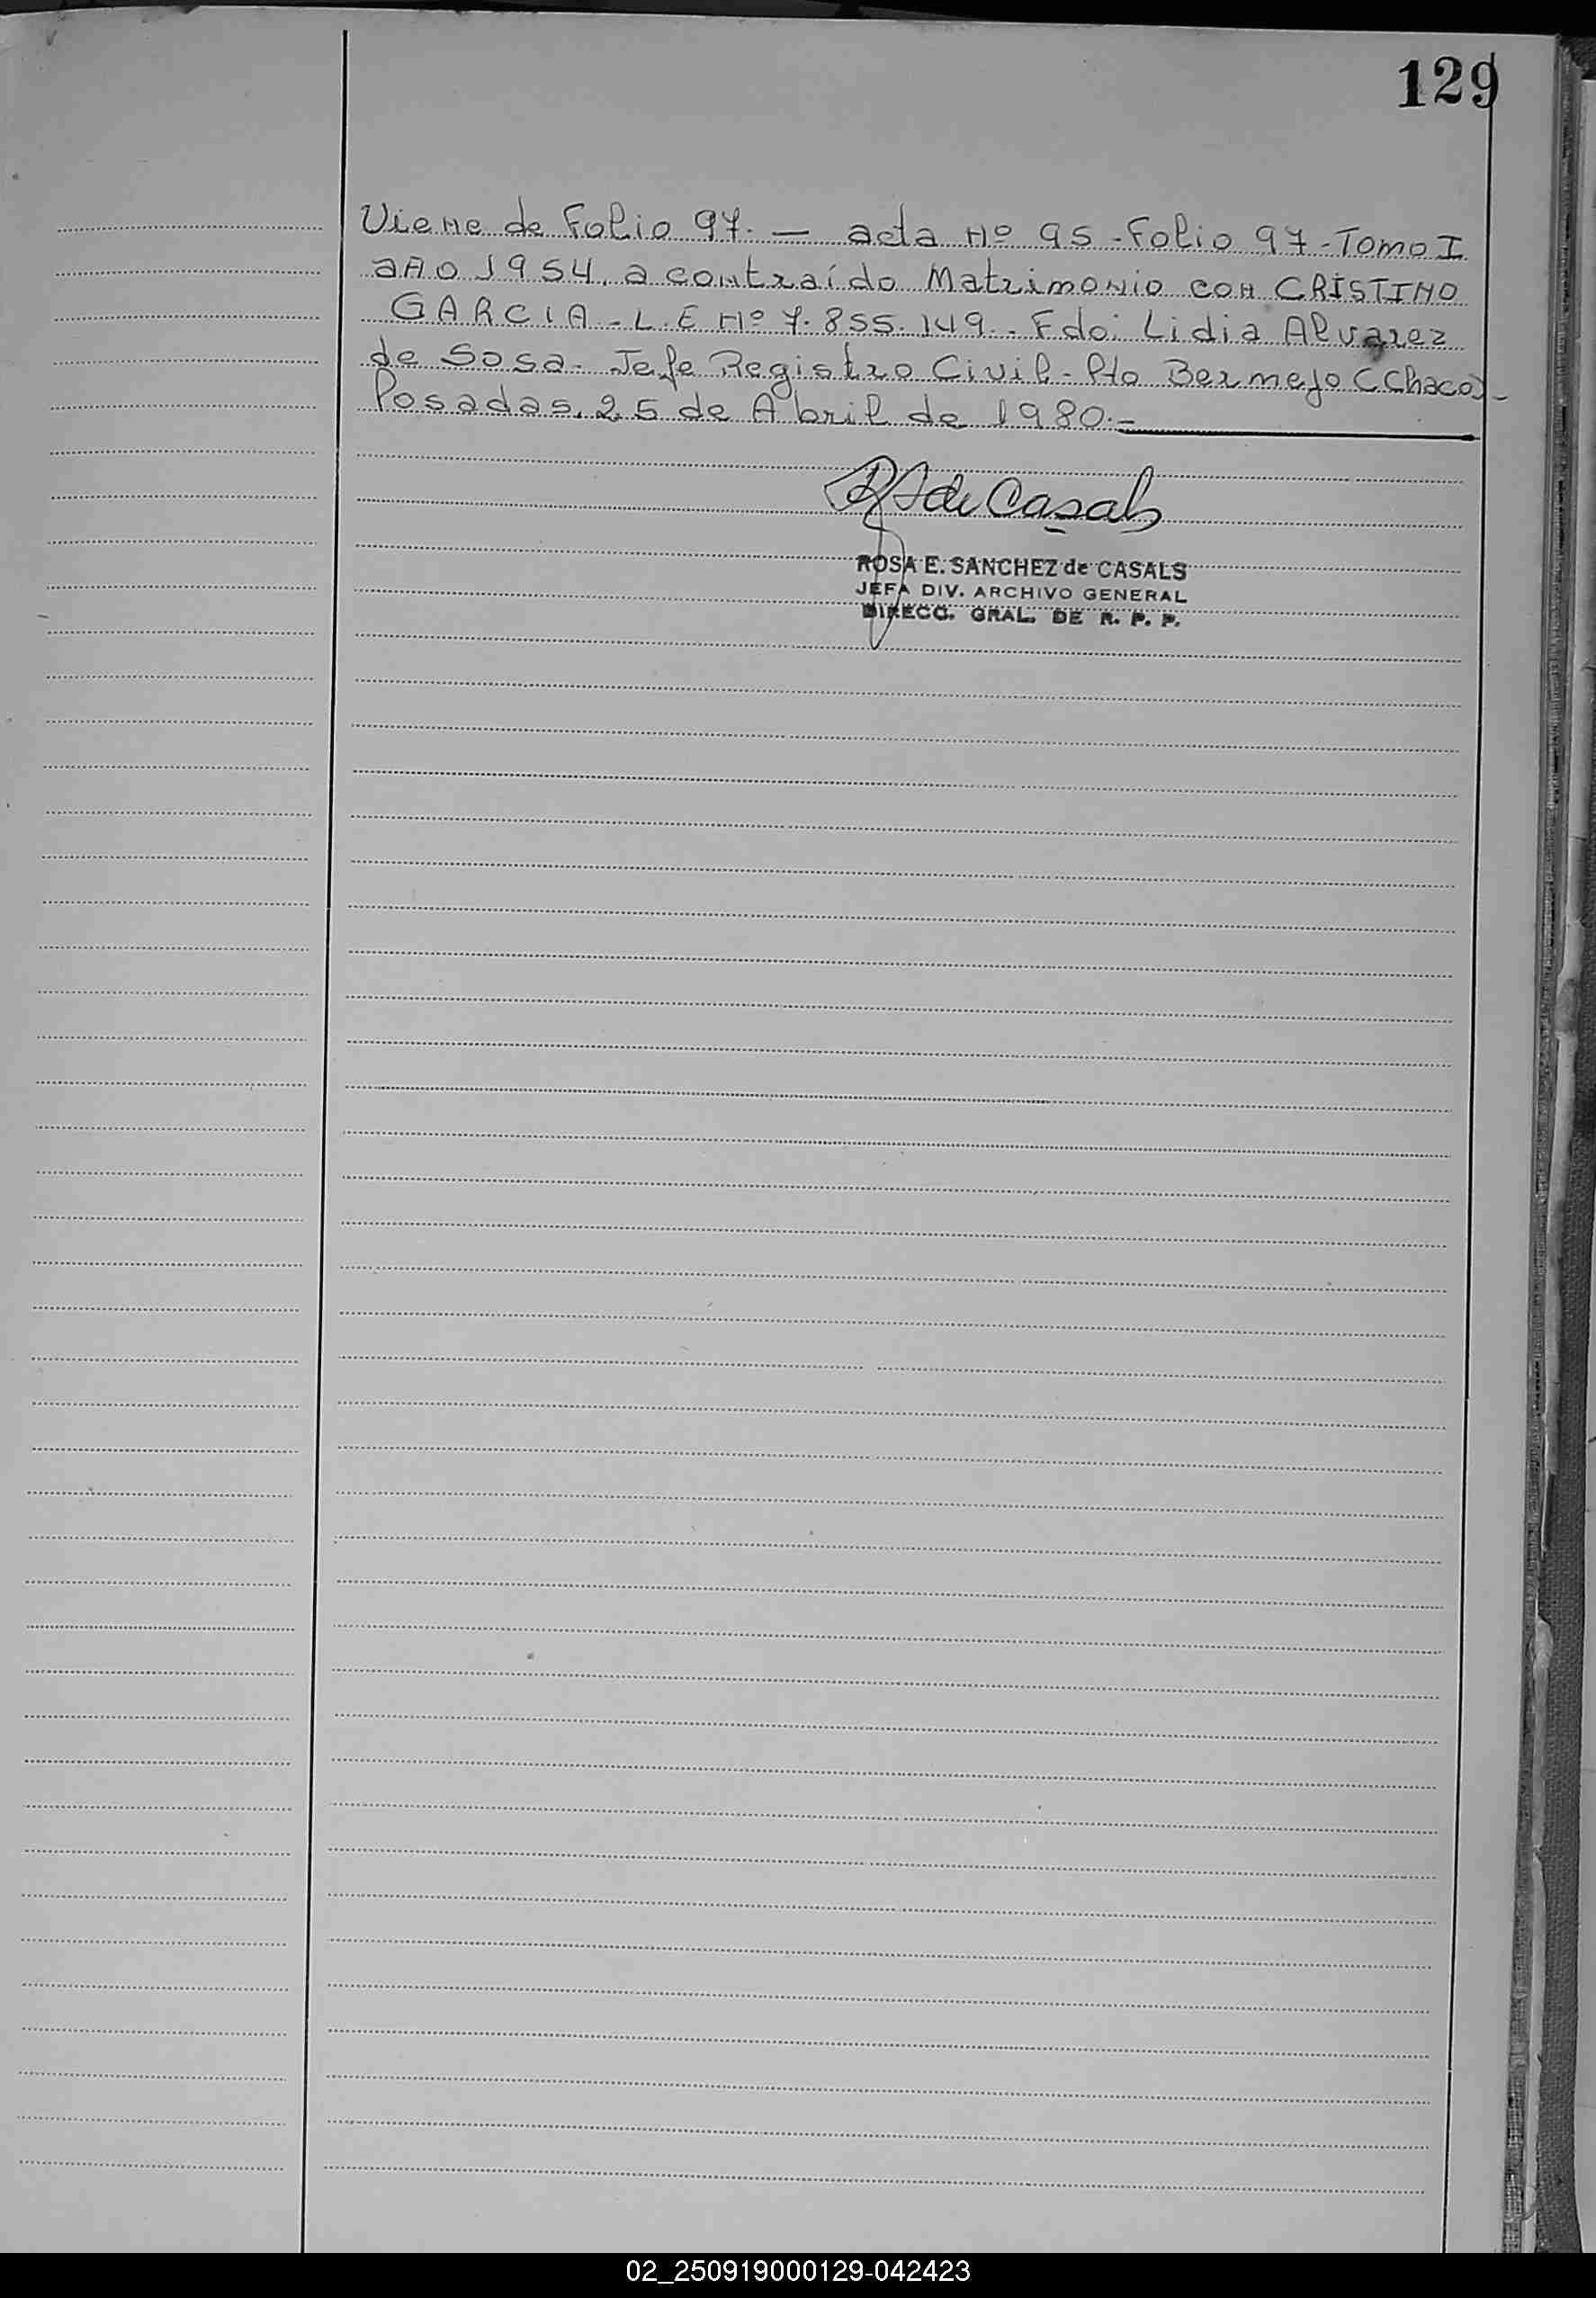 129
Viene de Folio 97. — acta Nº 95 - Folio 97 - Tomo I
año 1954, a contraído Matrimonio con CRISTINO
GARCIA - L.E Nº 7.855.149. - Fdo: Lidia Alvarez
de Sosa - Jefe Registro Civil - Pto Bermejo (Chaco) -
Posadas, 25 de Abril de 1980. -
RS de Casals
ROSA E. SANCHEZ de CASALS
JEFA DIV. ARCHIVO GENERAL
DIRECC. GRAL. DE R. P. P.
02_250919000129-042423